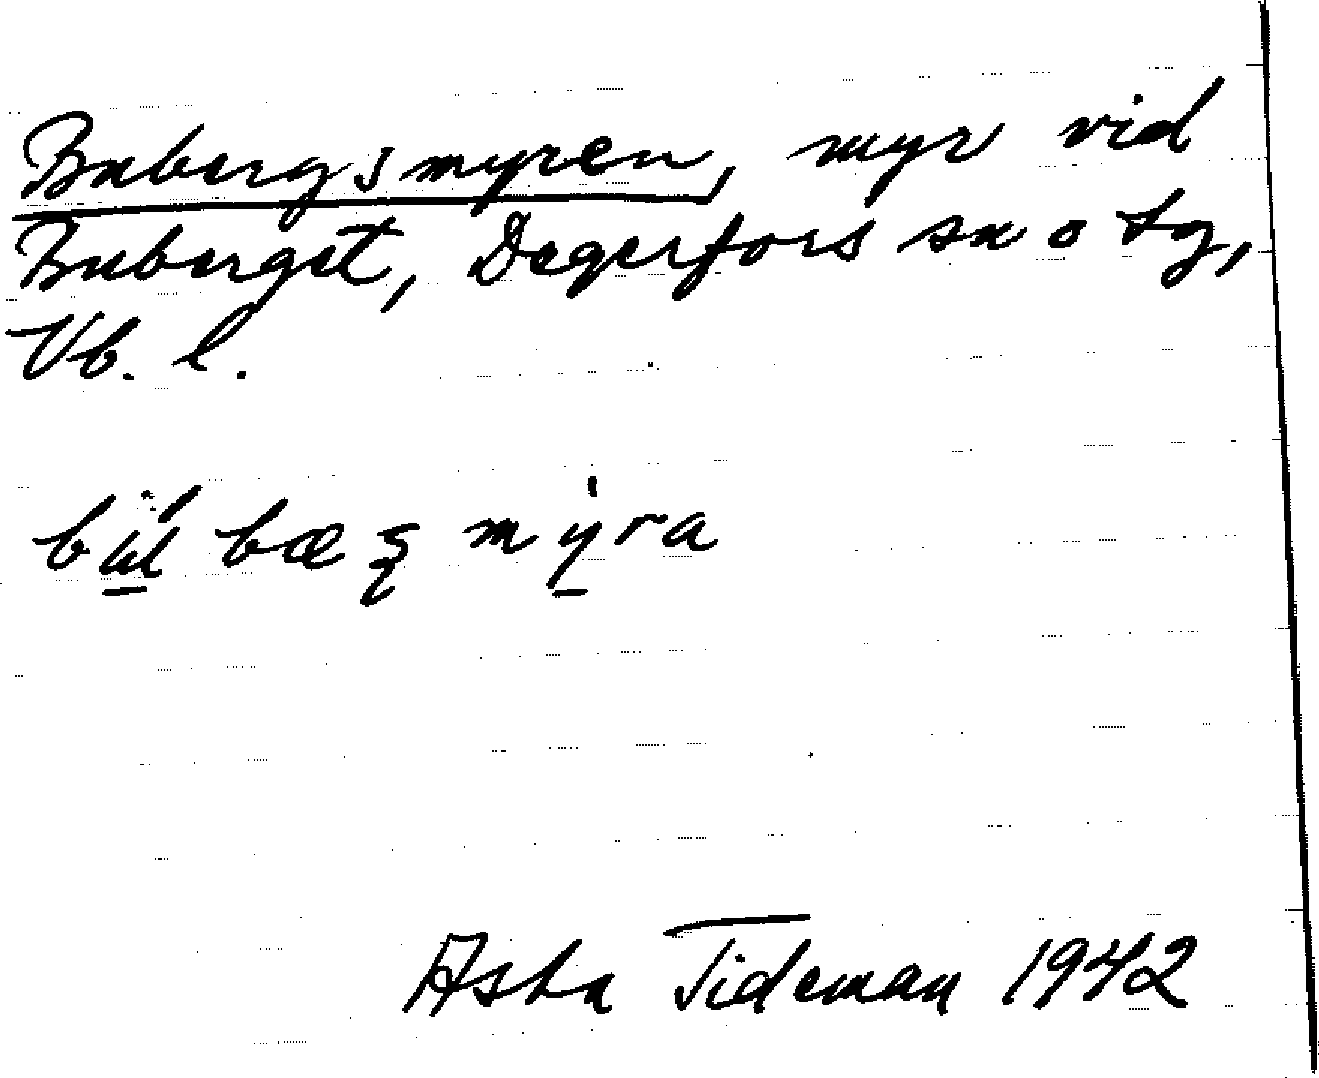 Bubergsmyren, myr vid
Buberget, Degerfors sn o tg,
Vb. l.
Asta Tideman 1942